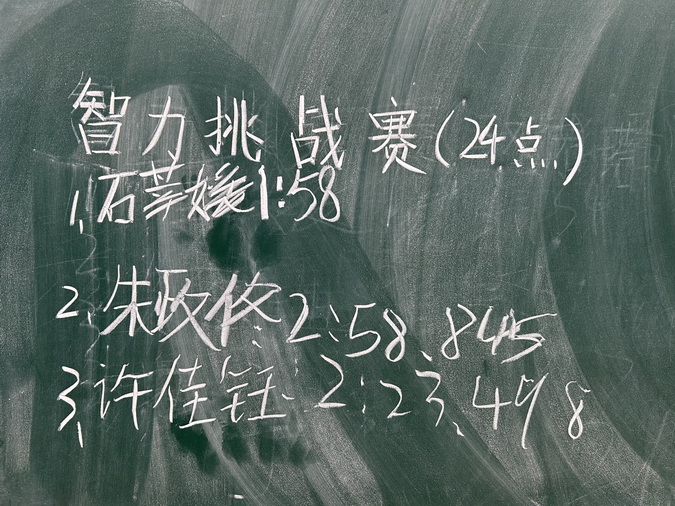 智力挑战赛(24点)
1.石莘媛1:58
2.朱政佟2:58.845
3.许佳钰:2:23.498